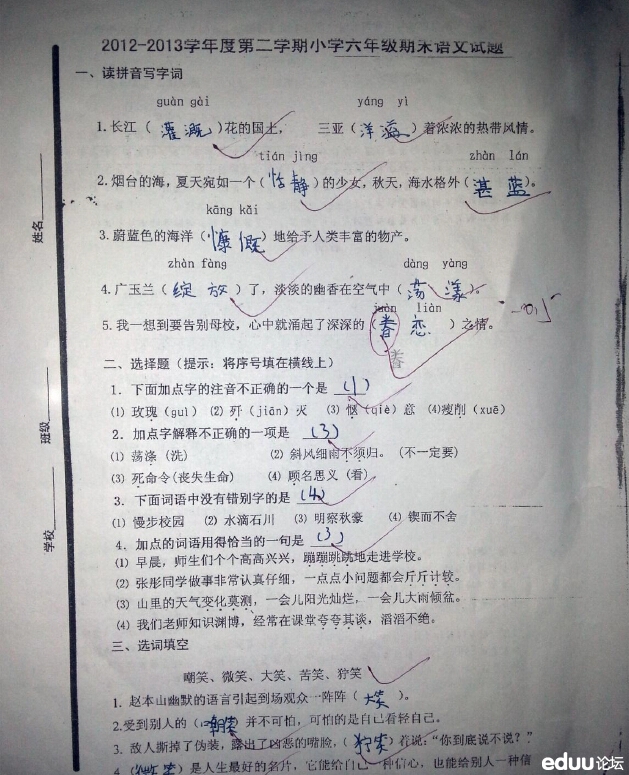 2012-2013学年度第二学期小学六年级期末语文试题
一、读拼音写字词
guàn gài yáng yì
1.长江（灌溉）花的国土， 三亚（洋溢）着浓浓的热带风情。
tián jìng zhàn lán
2.烟台的海，夏天宛如一个（恬静）的少女，秋天，海水格外（湛蓝）。
kāng kǎi
3.蔚蓝色的海洋（慷慨）地给予人类丰富的物产。
zhàn fàng dàng yàng
4.广玉兰（绽放）了，淡淡的幽香在空气中（荡漾）。
juàn liàn
5.我一想到要告别母校，心中就涌起了深深的（眷恋）之情。
眷
二、选择题（提示：将序号填在横线上）
1．下面加点字的注音不正确的一个是 (1)
⑴ 玫瑰（guì） ⑵ 歼（jiān）灭 ⑶ 惬（qiè）意 ⑷瘦削（xuē）
2．加点字解释不正确的一项是 (3)
⑴ 荡涤（洗） ⑵ 斜风细雨不须归。（不一定要）
⑶ 死命令(丧失生命) ⑷ 顾名思义（看）
3．下面词语中没有错别字的是 (4)
⑴ 慢步校园 ⑵ 水滴石川 ⑶ 明察秋豪 ⑷ 锲而不舍
4．加点的词语用得恰当的一句是 (3)
⑴ 早晨，师生们个个高高兴兴，蹦蹦跳跳地走进学校。
⑵ 张彤同学做事非常认真仔细，一点点小问题都会斤斤计较。
⑶ 山里的天气变化莫测，一会儿阳光灿烂，一会儿大雨倾盆。
⑷ 我们老师知识渊博，经常在课堂夸夸其谈，滔滔不绝。
三、选词填空
嘲笑、微笑、大笑、苦笑、狞笑
1．赵本山幽默的语言引起到场观众一阵阵（大笑）。
2.受到别人的（嘲笑）并不可怕，可怕的是自己看轻自己。
3．敌人撕掉了伪装，露出了凶恶的嘴脸，（狞笑）着说："你到底说不说？"
4（微笑）是人生最好的名片，它能给自己一种信心，也能给别人一种信
姓名
班级
学校
eduu论坛